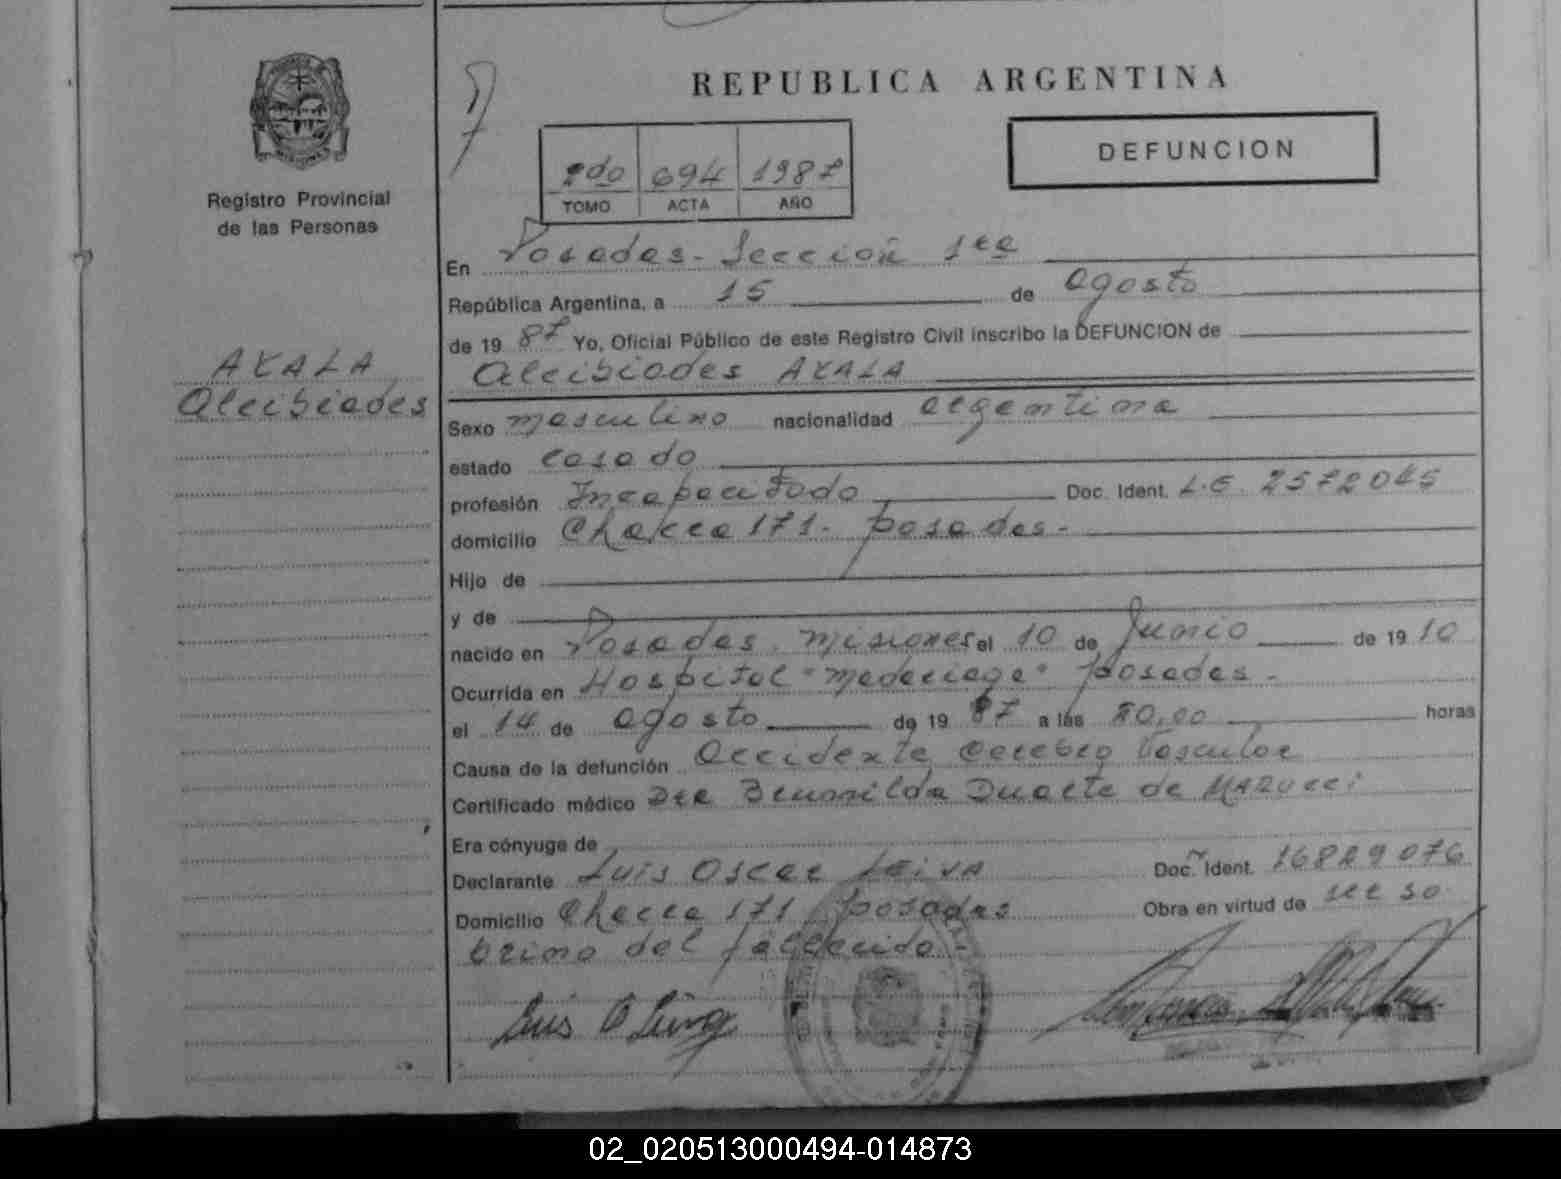 REPUBLICA ARGENTINA
DEFUNCION
2do 694 1987
TOMO ACTA AÑO
Registro Provincial
de las Personas
AYALA
Alcibiades
En Posadas - Sección 1ra
República Argentina, a 15 de agosto
de 19 87 Yo, Oficial Público de este Registro Civil inscribo la DEFUNCION de
Alcibiades AYALA
Sexo masculino nacionalidad argentina
estado casado
profesión Incapacitado Doc. Ident. L.E. 2572045
domicilio Chacra 171 - Posadas -
Hijo de
y de
nacido en Posadas, Misiones el 10 de Junio de 19 10
Ocurrida en Hospital "Madariaga" Posadas -
el 14 de agosto de 19 87 a las 20,00 horas
Causa de la defunción Accidente Cerebro Vascular
Certificado médico Dra Brunilda Duarte de MARUCCi
Era cónyuge de
Declarante Luis Oscar LEiVA Doc. Ident. 16829076
Domicilio Chacra 171 Posadas Obra en virtud de ser so
brino del fallecido -
Luis O Leiva
02_020513000494-014873